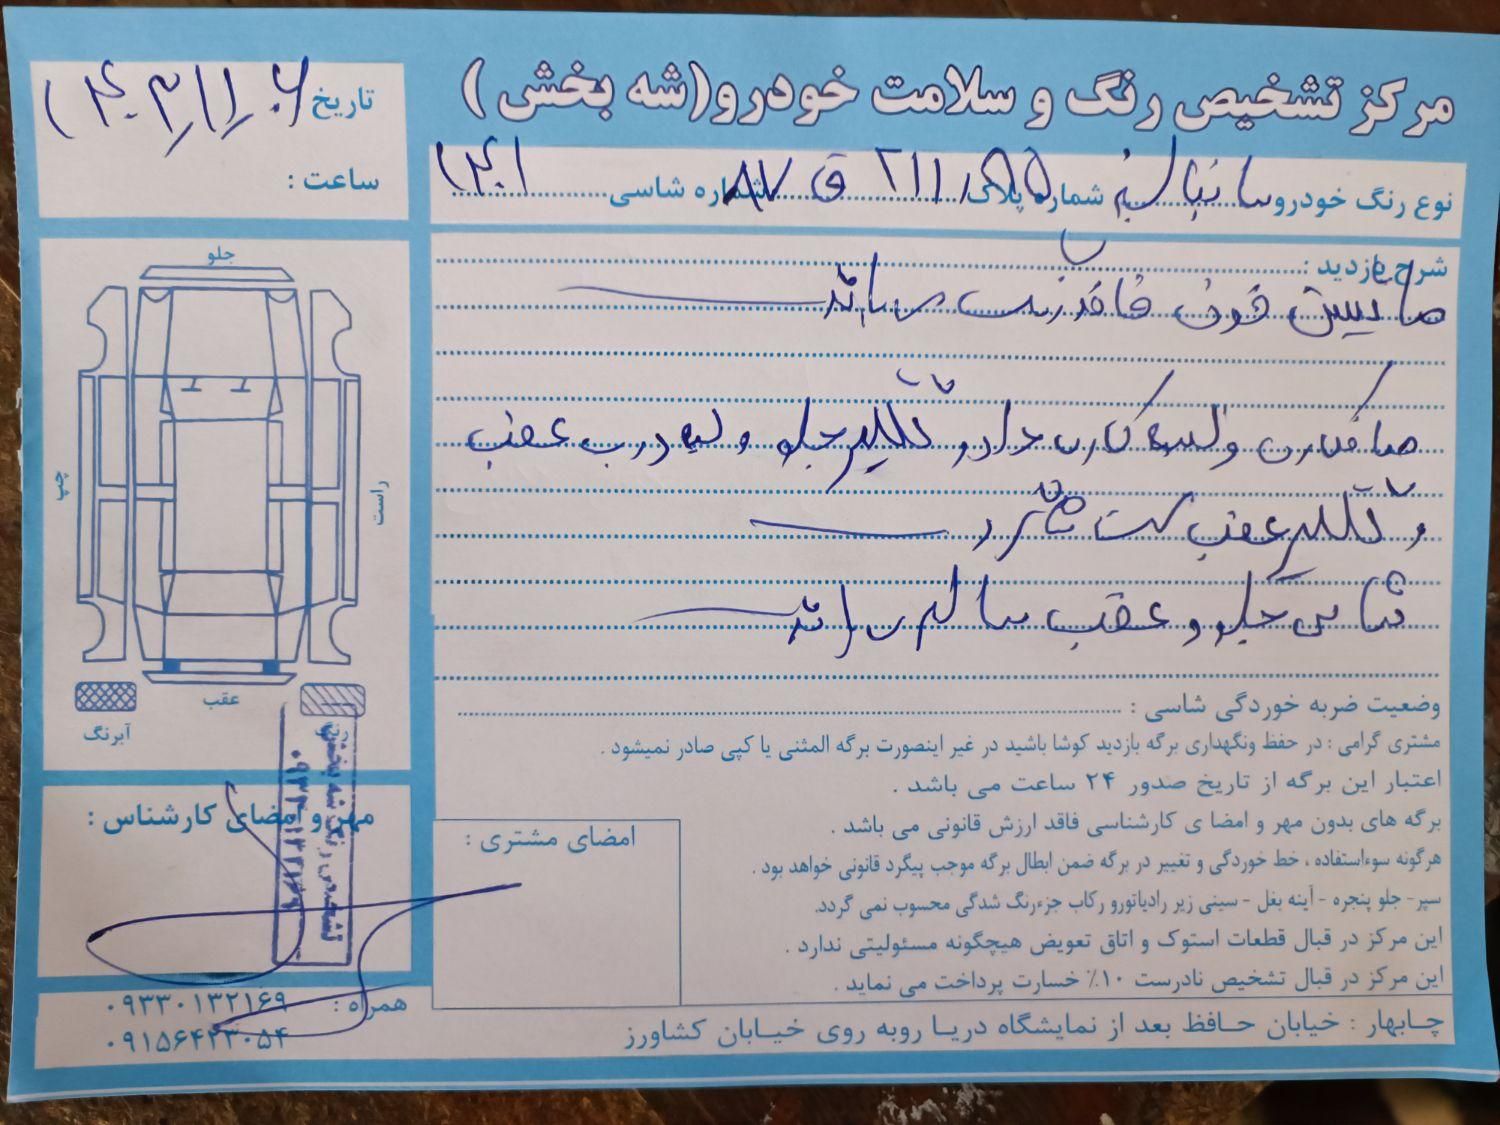 مرکز تشخیص رنگ و سلامت خودرو(شه بخش )
تاریخ ۱۴۰۳/۱۱/۰۶
ساعت :
نوع رنگ خودرو ساینا سفید شماره پلاک ق ۸۷ شماره شاسی ۱۴۰۱
شرح بازدید :
ماشین فوق فاقد رنگ می باشد
صافکاری و لیسه کاری دارد گلگیر جلو و لبه درب عقب
و گلگیر عقب سمت شاگرد
شاسی جلو و عقب سالم می باشد
جلو
چپ
راست
عقب
آبرنگ
رنگ
وضعیت ضربه خوردگی شاسی :
مشتری گرامی : در حفظ ونگهداری برگه بازدید کوشا باشید در غیر اینصورت برگه المثنی یا کپی صادر نمیشود .
اعتبار این برگه از تاریخ صدور ۲۴ ساعت می باشد .
برگه های بدون مهر و امضا ی کارشناسی فاقد ارزش قانونی می باشد .
هرگونه سوءاستفاده ، خط خوردگی و تغییر در برگه ضمن ابطال برگه موجب پیگرد قانونی خواهد بود .
سپر- جلو پنجره - آینه بغل - سینی زیر رادیاتورو رکاب جزءرنگ شدگی محسوب نمی گردد.
این مرکز در قبال قطعات استوک و اتاق تعویض هیچگونه مسئولیتی ندارد .
این مرکز در قبال تشخیص نادرست ۱۰٪ خسارت پرداخت می نماید .
مهر و امضای کارشناس :
تشخیص رنگ شه بخش
۰۹۳۳۰۱۳۲۱۶۹
امضای مشتری :
همراه : ۰۹۳۳۰۱۳۲۱۶۹
۰۹۱۵۶۴۲۳۰۵۴
چـابهار : خیابان حـافظ بعد از نمایشگاه دریـا روبه روی خیـابان کشاورز